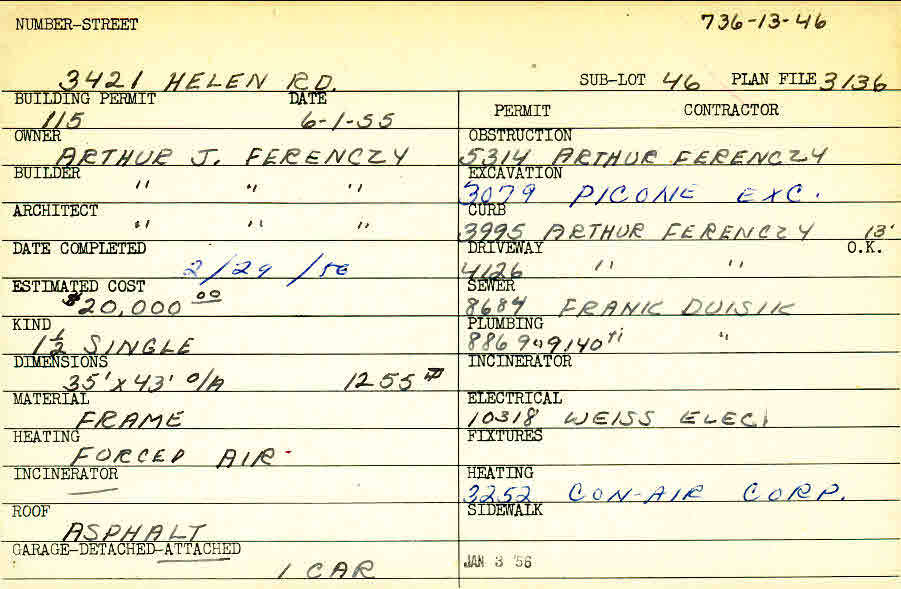 NUMBER-STREET
736-13-46
3421 HELEN RD.
SUB-LOT 46 PLAN FILE 3136
BUILDING PERMIT DATE
115 6-1-55
PERMIT CONTRACTOR
OWNER
ARTHUR J. FERENCZY
OBSTRUCTION
5314 ARTHUR FERENCZY
BUILDER
" " "
EXCAVATION
3079 PICONE EXC.
ARCHITECT
" " "
CURB
3995 ARTHUR FERENCZY 13'
DATE COMPLETED
2/29/56
DRIVEWAY O.K.
4126 " "
ESTIMATED COST
$20,000 00
SEWER
8684 FRANK DUISIK
KIND
1 1/2 SINGLE
PLUMBING
8869 9140 "
DIMENSIONS
35' x 43' O/A 1255
INCINERATOR
MATERIAL
FRAME
ELECTRICAL
10318 WEISS ELEC.
HEATING
FORCED AIR
FIXTURES
INCINERATOR
HEATING
3252 CON-AIR CORP.
ROOF
ASPHALT
SIDEWALK
GARAGE-DETACHED-ATTACHED
1 CAR
JAN 3 '56